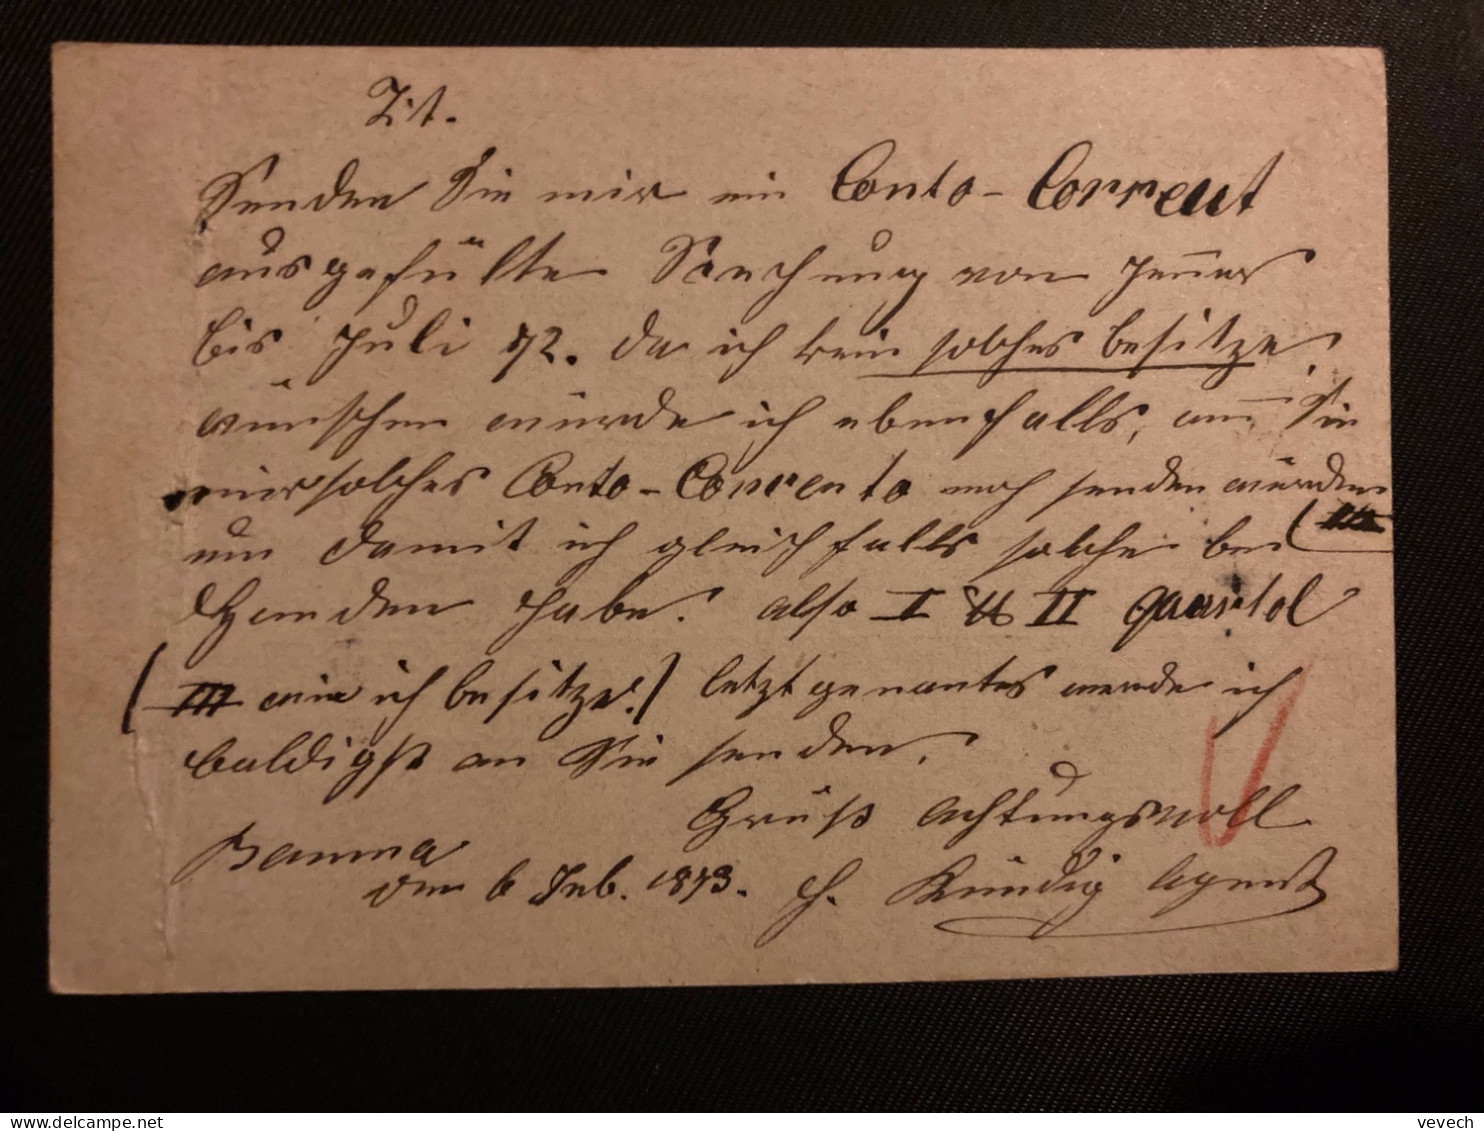 Tit.
Senden Sie mir ein Conto-Corrent
ausgefülte Rechnung von Jenner
bis Juli 72. da ich kein solches besitze,
wünschen würde ich ebenfalls, Sie
mir solches Conto-Corrento noch senden würden
um damit ich gleichfalls solche bei
Handen habe. also I & II Quartal
(III wie ich besitze.) letztgenantes werde ich
baldigst an Sie senden.
Grüßt achtungsvoll
Bauma
den 6 Feb. 1873. H. Kündig Agent
vevech